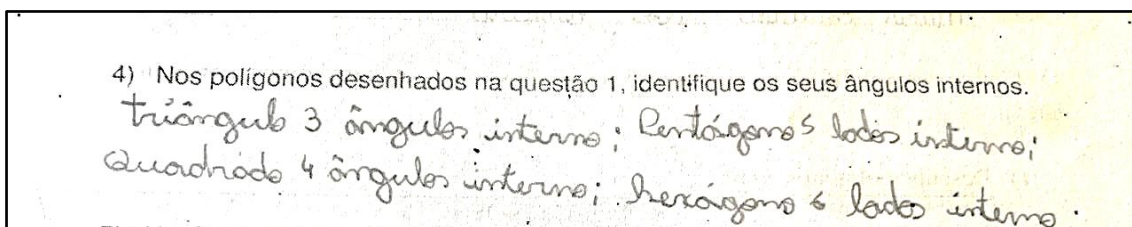 4) Nos polígonos desenhados na questão 1, identifique os seus ângulos internos.
triângulo 3 ângulos interno; Pentágono 5 lados interno;
Quadrado 4 ângulos interno; hexágono 6 lados interno.